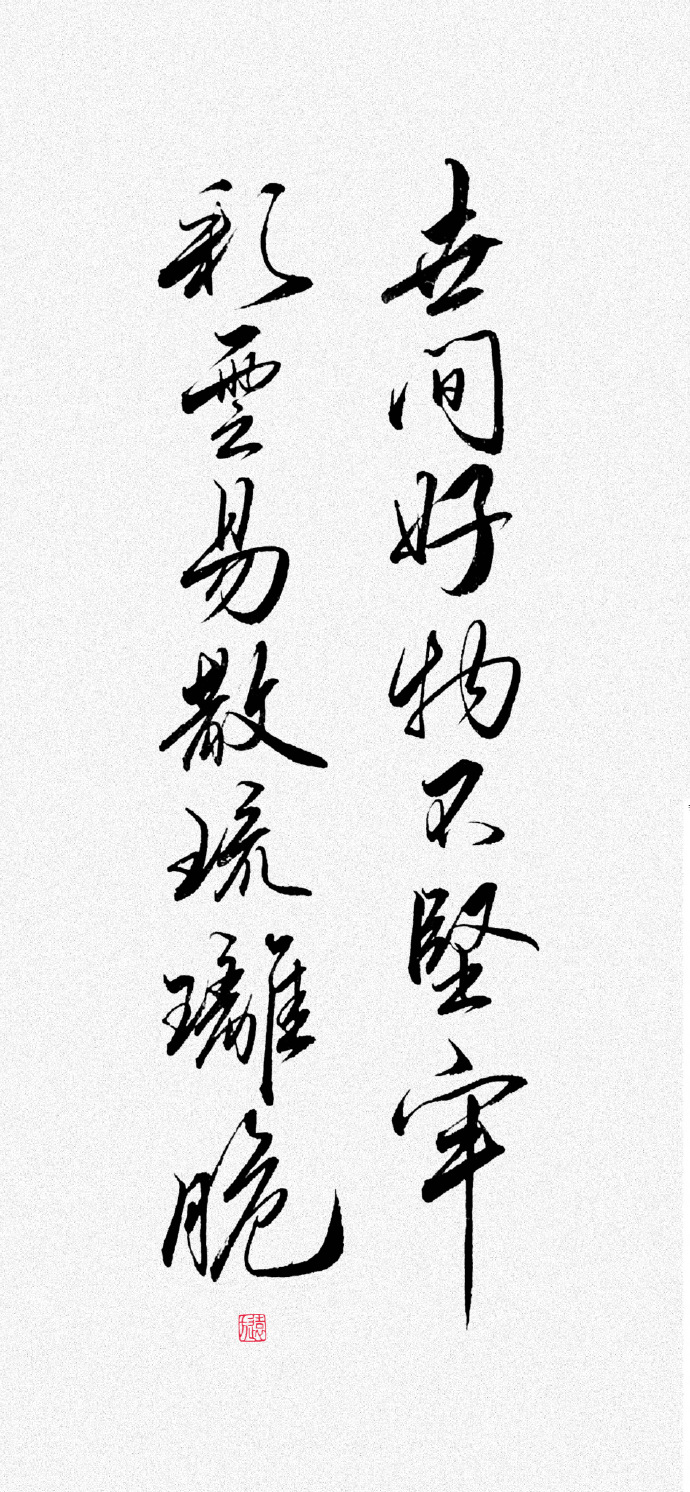 世间好物不堅牢
彩雲易散琉璃脆